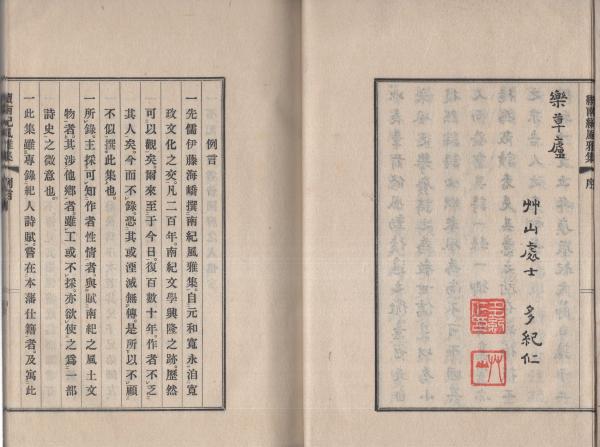 續南紀風雅集 序
樂草廬
艸山處士 多紀仁
例言
一先儒伊藤海嶠撰南紀風雅集。自元和寬永洎寬
政文化之交。凡二百年。南紀文學興隆之跡。歷然
可以觀矣。爾來至于今日。復百數十年。作者不乏
其人矣。今而不錄。恐其或湮滅無傳。是所以不顧
不似。撰此集也。
一所錄。主採可知作者性情者。與賦南紀之風土文
物者。其涉他鄉者。雖工或不採。亦欲使之爲一部
詩史之微意也。
一此集。雖專錄紀人詩賦。嘗在本藩仕籍者。及寓此
續南紀風雅集 例言